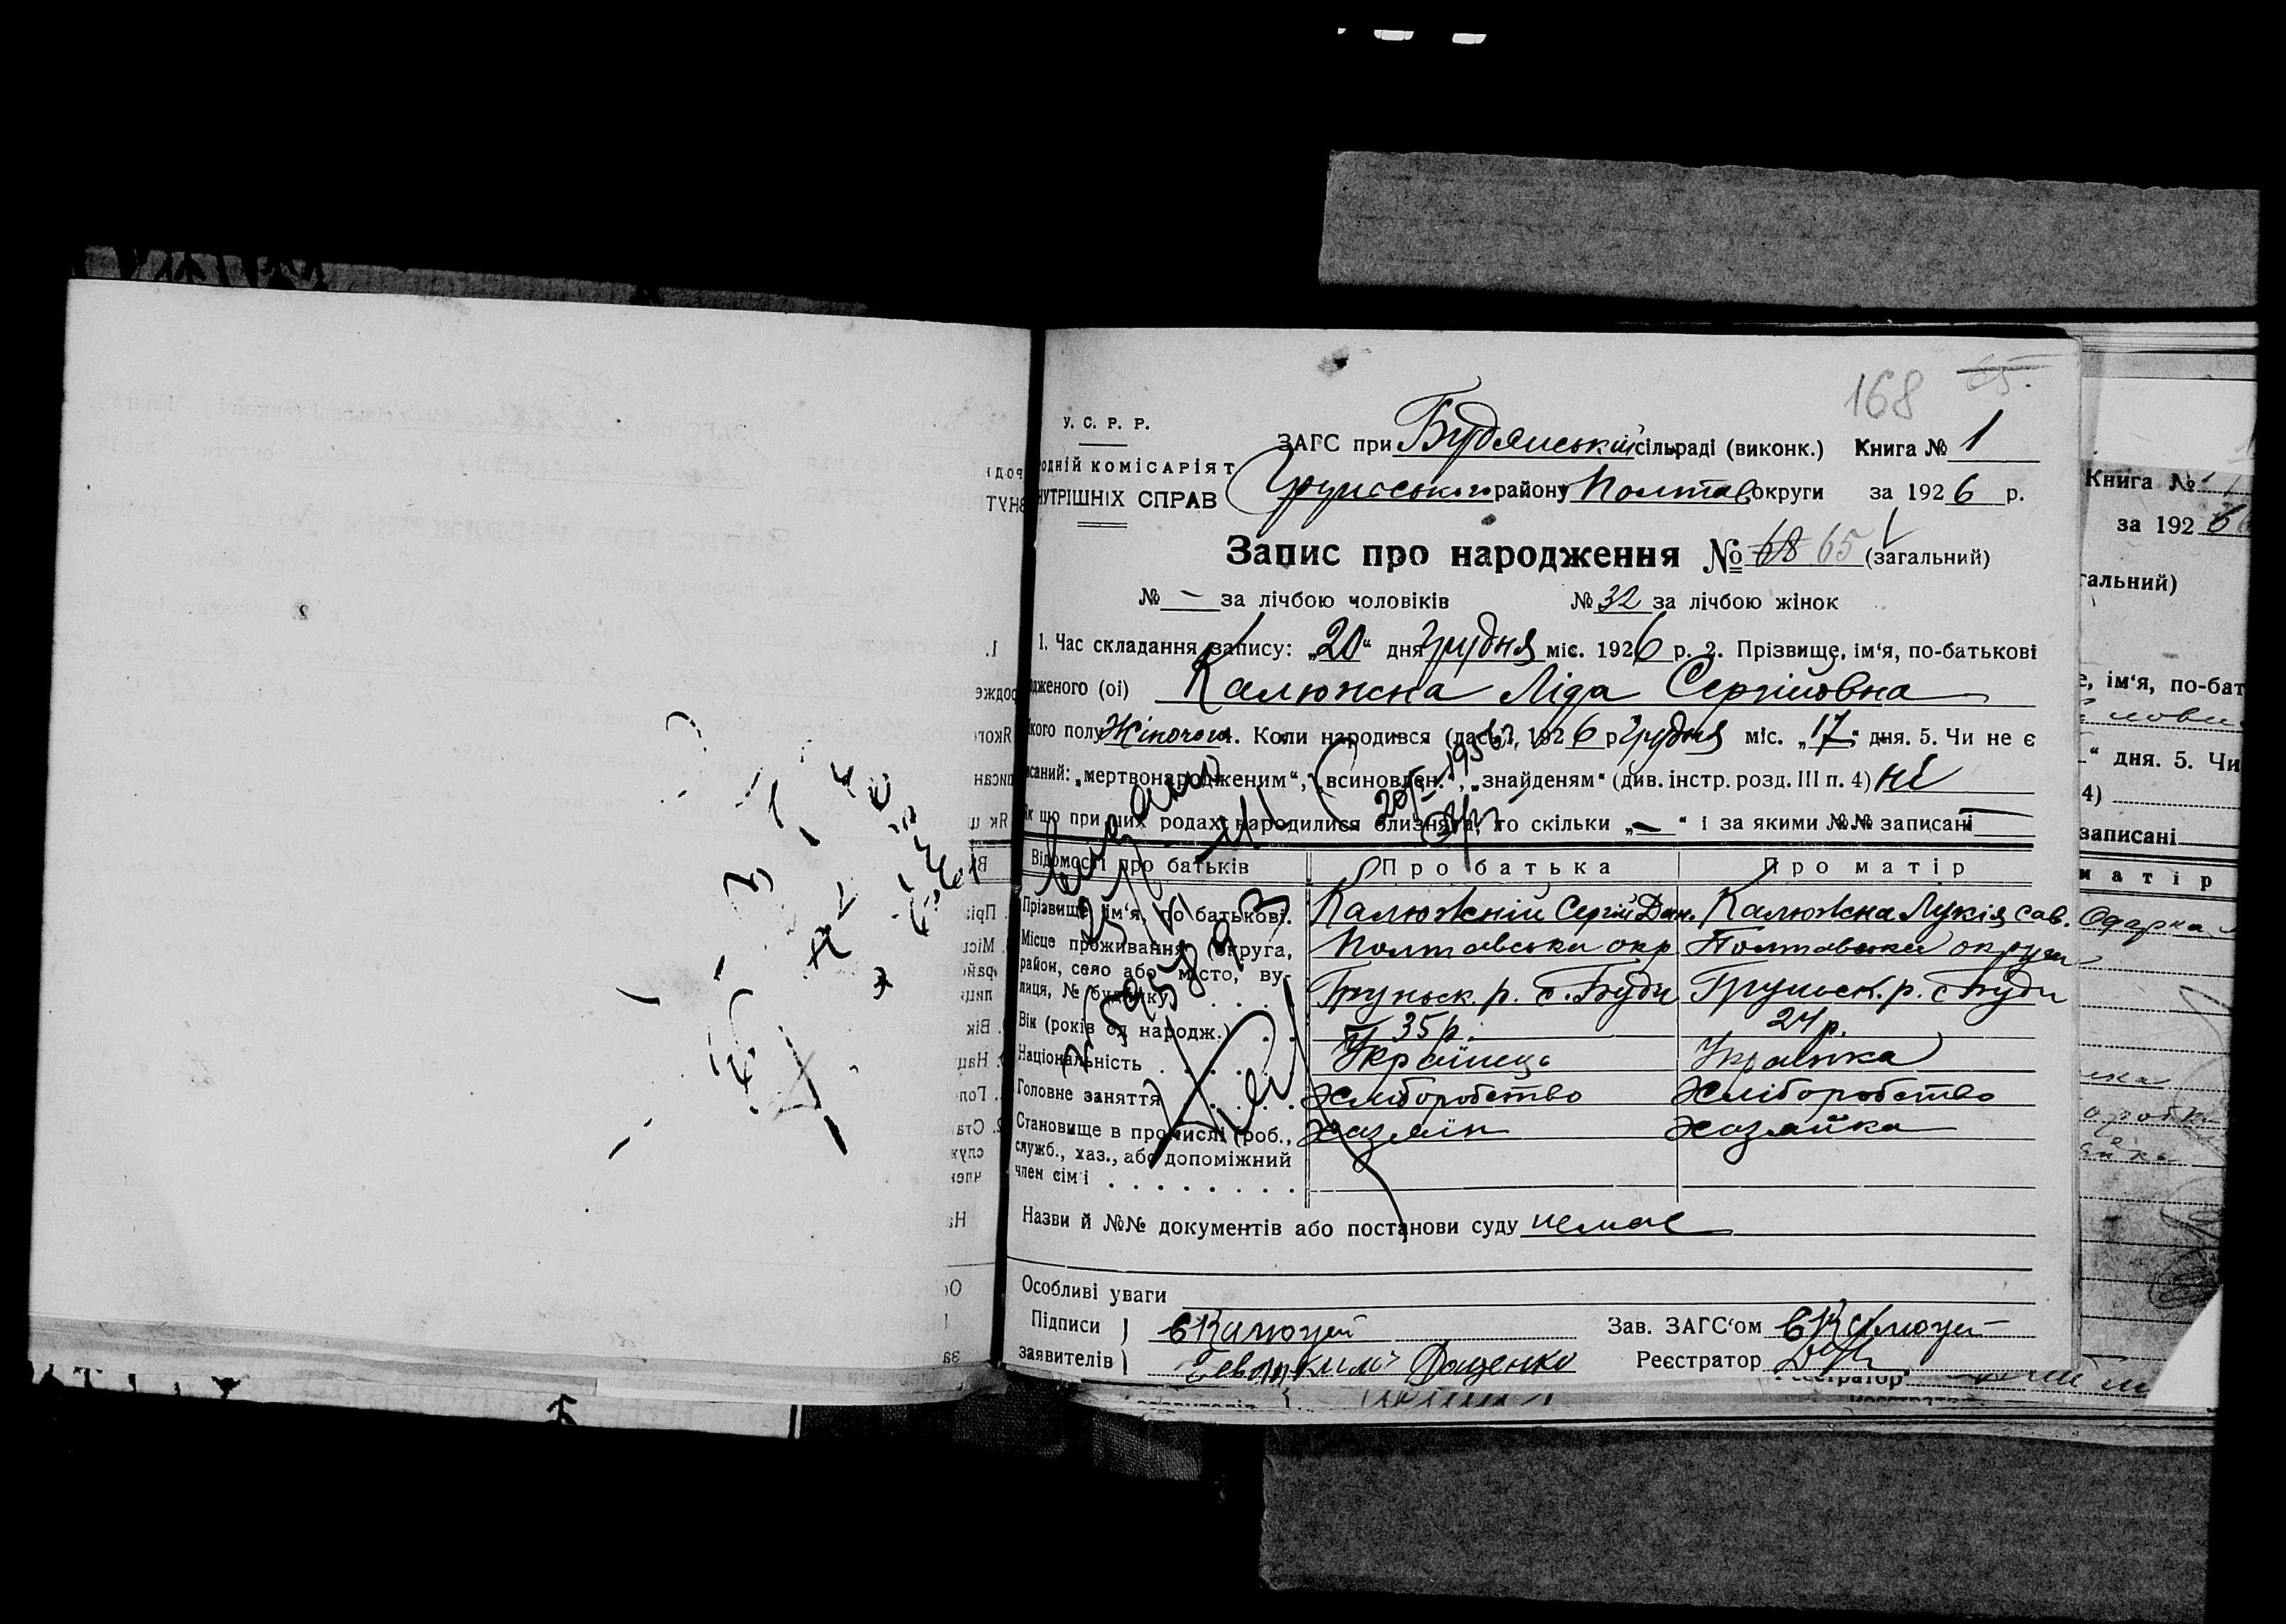 168 65.
У. С. Р. Р.
ЗАГС при Будянський сільраді (виконк.) Книга № 1
одній комісаріят
нутрішніх справ
району Полтав округи за 1926 р.
Запис про народження № 68 65 (загальний)
№ – за лічбою чоловіків № 32 за лічбою жінок
1. Час складання запису: „20“ дня Грудня міс. 1926 р. 2. Прізвище, ім‘я, по-батькові
дженого (ої) Калюжна Ліда Сергійовна
кого полу Жіночого 4. Коли народився (лась). 1926 р Грудня міс. „17“ дня. 5. Чи не є
исаний: „мертвонародженим“, „всиновлен.“, „знайденям“ (див. інстр. розд. III п. 4) ні
Як що при цих родах народилися близнята, то скільки „–“ і за якими №№ записані –
Відомості про батьків Про батька Про матір
Прізвище, ім‘я, по батькові. Калюжній Сергій Дан. Калюжна Лукія Сав.
Місце проживання (округа, Полтавська окр. Полтавська округа
район, село або місто, ву-
лиця, № будинку) . . . Груньск. р. с. Буди Груньск. р. с Буди
Вік (років од народж.) . . 35 р. 24 р.
Національність . . . . Українець Українка
Головне заняття . . . . Хліборобство Хліборобство
Становище в промислі (роб., Хазяїн Хозяйка
служб., хаз., або допоміжний
член сім‘ї . . . . . . . .
Назви й №№ документів або постанови суду немає
Особливі уваги
Підписи
заявителів Дащенко
Зав. ЗАГС‘ом
Реєстратор
Книга №
за 1926
гальний)
, ім‘я, по-бат
“ дня. 5. Чи
4)
записані
матір
Одарка
Реєстратор